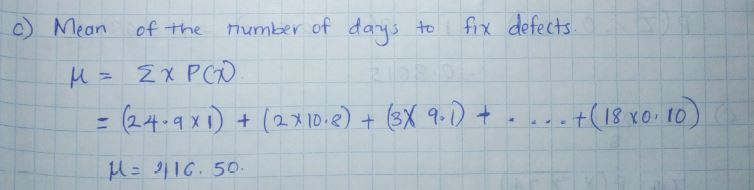 c) Mean of the number of days to fix defects.
μ = Σ x P(x)
= (24.9 x 1) + (2 x 10.8) + (3 x 9.1) + . . . . + (18 x 0.10)
μ = 416.50.